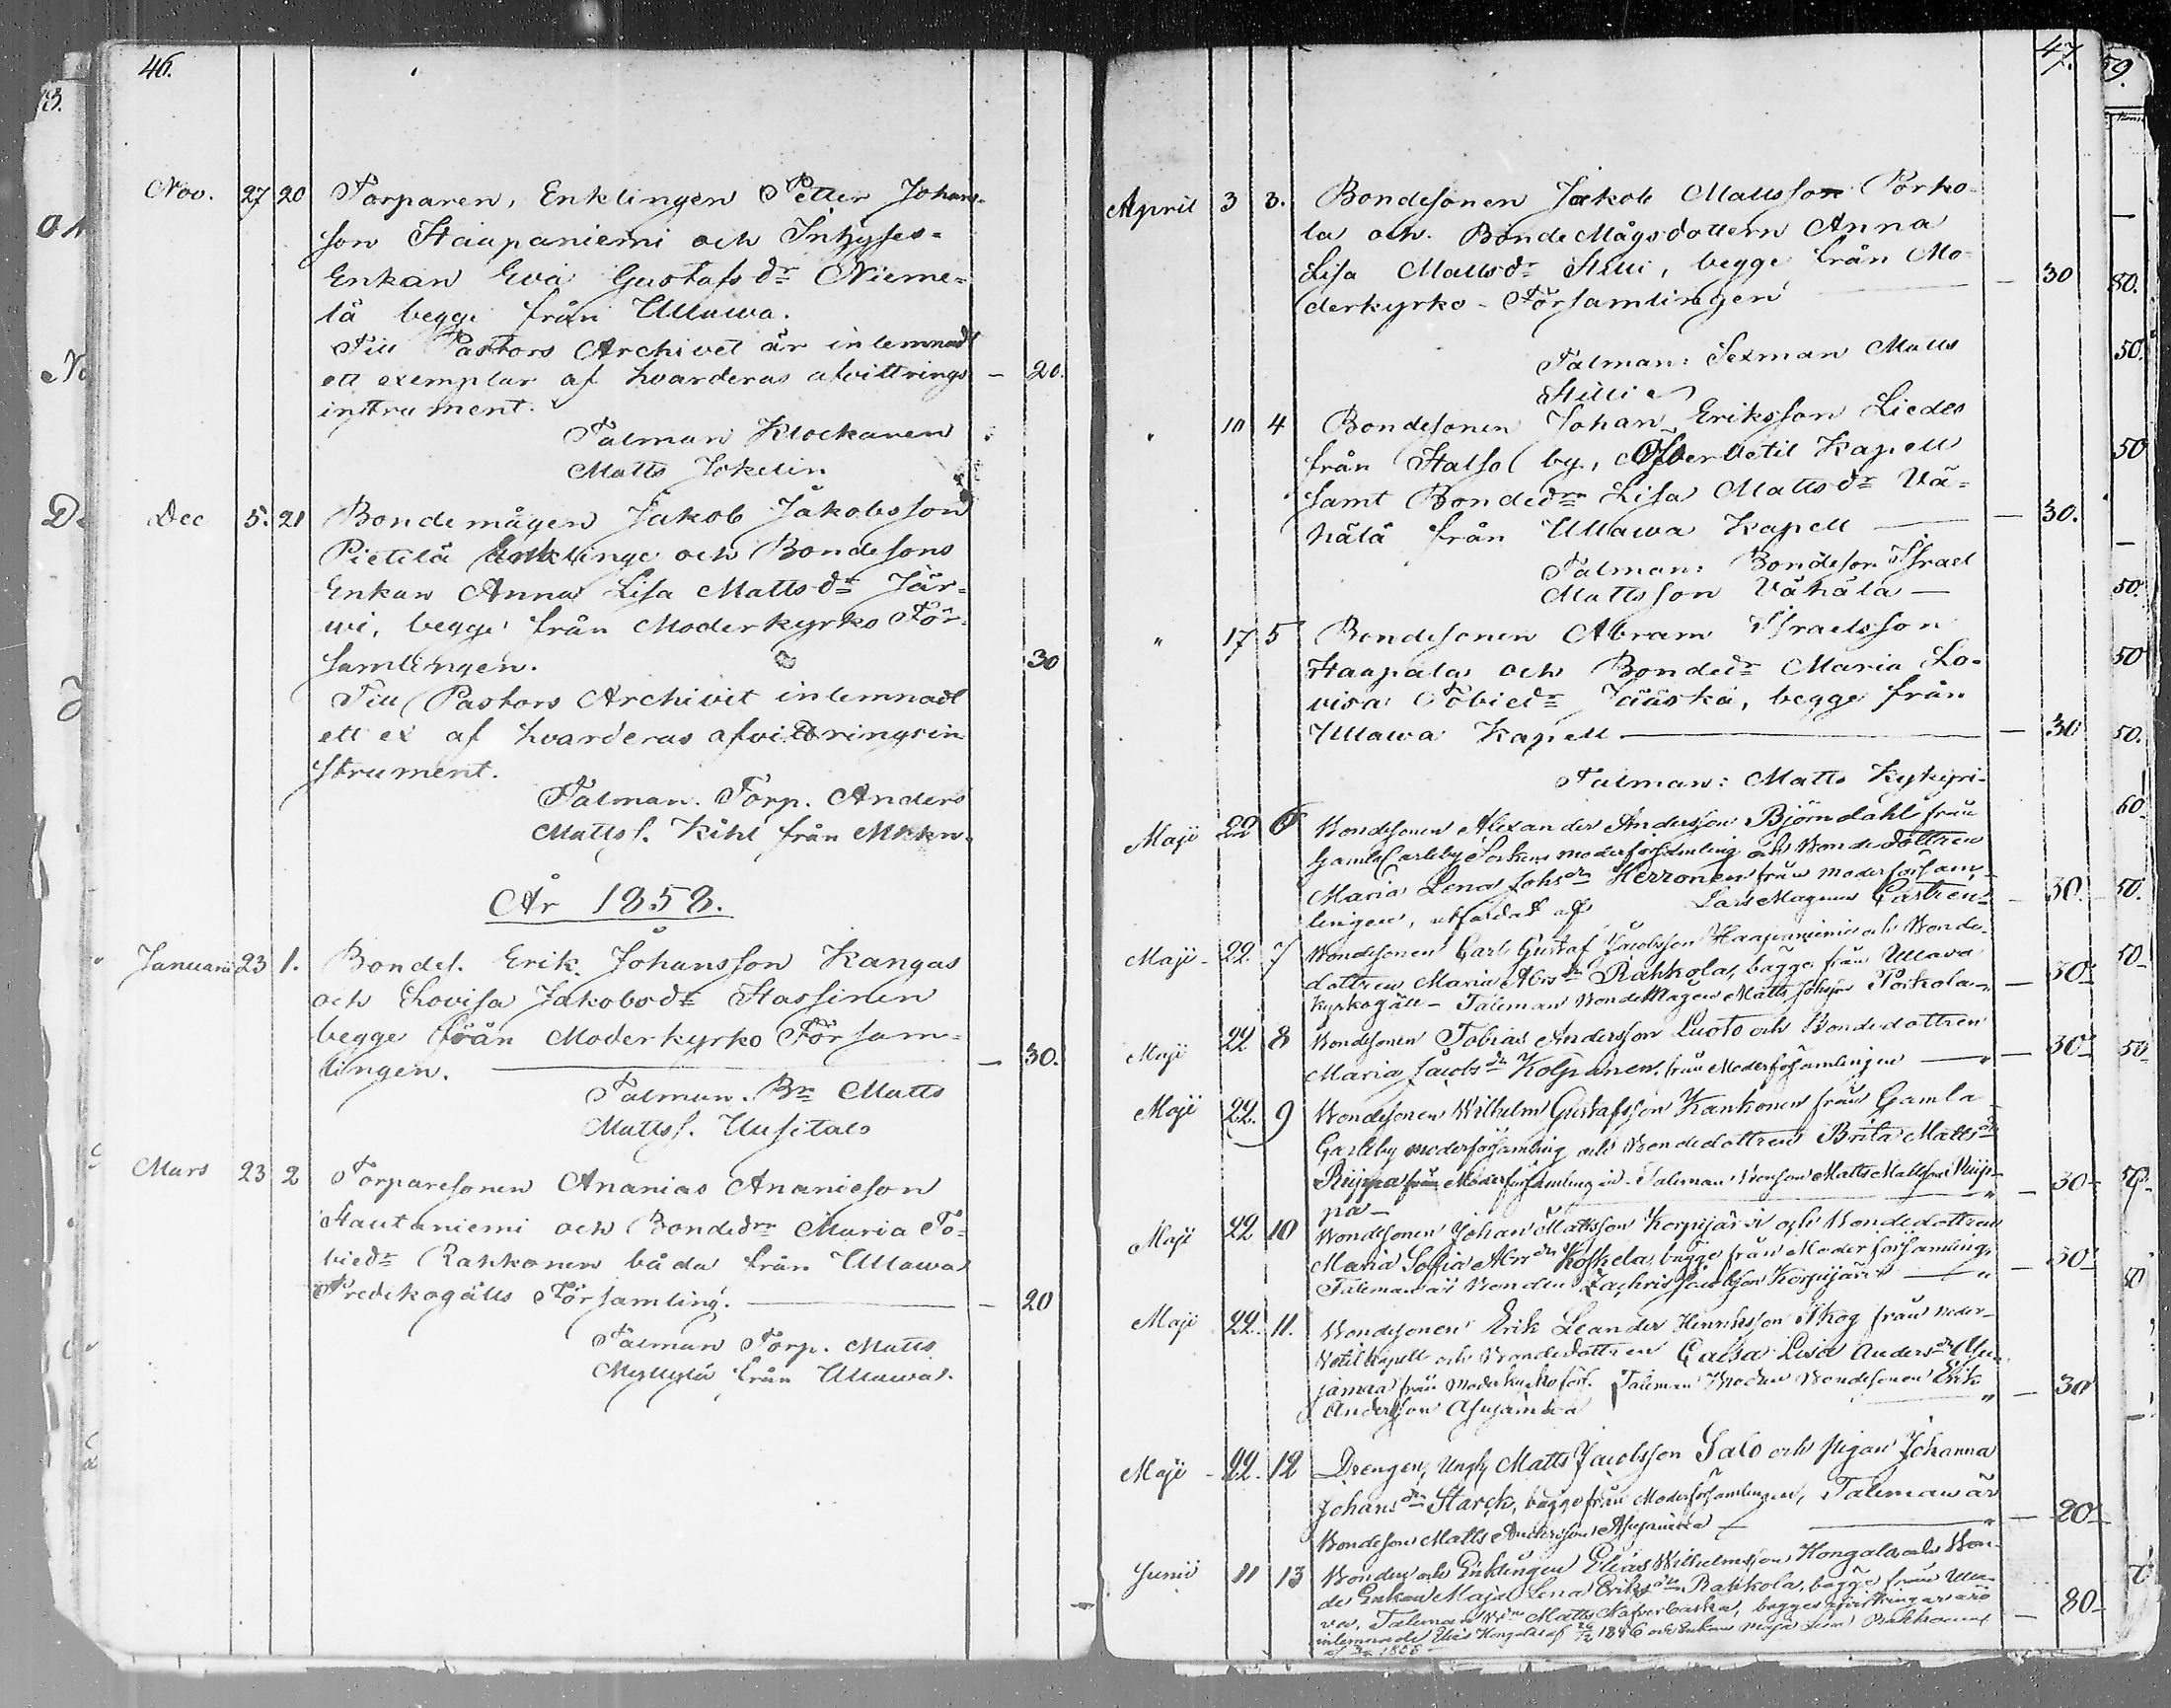 46.
Nov. 27 20 Torparen, Enklingen Petter Johans-
son Haapaniemi och Inhyses-
Enkan Eva Gustafsdr Nieme-
lä begge från Ullawa.
Till Pastors Archivet är inlemnadt
ett exemplar af hvarderas afvittrings — 20.
instrument.
Talman Klockaren
Matts Jokelin
Dec 5. 21 Bondemågen Jakob Jakobsson
Pietilä Enklinge och Bondesons
Enkan Anna Lisa Mattsdr Jär-
wi, begge från Moderkyrko För-
samlingen. 30
Till Pastors Archivet inlemnadt
ett ex af hvarderas afvittringsin
strument.
Talman. Torp. Anders
Mattss. Kihl från Mkkn.
År 1858.
Januarii 23 1. Bondes. Erik Johansson Kangas
och Lovisa Jakobsdr Hassinen
begge från Moderkyrko Försam-
lingen. — 30.
Talman. Bn Matts
Mattss. Uusitalo
Mars 23 2 Torparesonen Ananias Ananieson
Hautaniemi och Bondedrn Maria To-
biedr Rahkonen båda från Ullawa
Predikogälls Församling. — 20
Talman Torp. Matts
Myllylä från Ullawa.
47.
April 3 3. Bondesonen Jakob Mattsson Porko-
la och BondeMågsdottern Anna
Lisa Mattsdr Hilli, begge från Mo-
derkyrko-Församlingen — 30
Talman: Sexman Matts
Hilli
" 10 4 Bondesonen Johan Eriksson Liedes
från Halso by, Öfvervetil Kapell
samt Bondedrn Lisa Mattsdr Vä-
hälä från Ullawa Kapell — 30.
Talman: Bondeson Israel
Mattsson Vähälä —
" 17 5 Bondesonen Abram Israelsson
Haapala och Bondedr Maria Lo-
visa Tobiedr Jääskä, begge från
Ullawa Kapell — 30
Talman: Matts Kykyri
Maji 22 6 Bondesonen Alexander Andersson Björndahl från
GamlaCarleby Sockens moderförsamling och Bondedottren
Maria Lena Johsdr Herronen från moderförsam-
lingen, utfärdat af Lars Magnus Castren — 30.
Maji 22. 7 Bondesonen Carl Gustaf Jacobsson Haapaniemi och Bonde-
dottren Maria Abrsdr Rahkola, bägge från Ullava
Kyrkogäll - Taleman BondeMågen Matts Johsson Porkola — 30
Maji 22 8 Bondesonen Tobias Andersson Luoto och Bondedottren
Maria Jacobsdr Kolpanen från Moderförsamlingen — 30
Maji 22. 9 Bondesonen Wilhelm Gustafsson Kankonen från Gamla
Carleby moderförsamling och Bondedottren Brita Mattsdr
Riippa från Moderförsamlingen - Taleman Matts Mattsson Riip- — 30
pa —
Maji 22 10 Bondesonen Johan Mattsson Korpijärvi och Bondedottren
Maria Sofia Abrsdr Koskela, bägge från Moderförsamling,
Taleman är Bonden Zachris Jacobsson Korpijärvi — 30
Maji 22. 11. Bondesonen Erik Leander Henriksson Skog från Neder-
Vetil kapell och Bondedottren Caisa Lisa Andersdr
från Moderkyrkoförs. Taleman Bondesonen Erik
Andersson — 30
Maji 22. 12 Drengen, Matts Jacobsson Salo och pigan Johanna
Johansdr Starck, bägge från Moderförsamlingen, Taleman är
Bondeson Matts Andersson — 20
Junii 11 13 Bonden och Enklingen Elias Wilhelmsson Hongala och Bon-
de Enkan Maja Lena Eriksdr Rahkola, bägge från Ulla-
va, Taleman Matts, begges afvittringar äro — 80
inlemnade Elias Hongalas af 1846 och Enkan Maja Lena